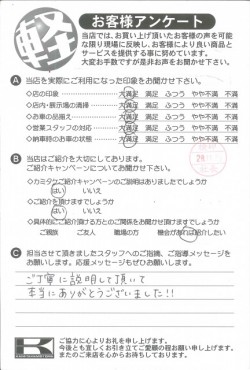 軽
お客様アンケート
当店では、お買い上げ頂いたお客様の声を可能
な限り現場に反映し、お客様により良い商品と
サービスを提供する事に努めています。
大変お手数ですが是非お声をお聞かせ下さい。
A 当店を実際にご利用になった印象をお聞かせ下さい。
◇店の印象 大満足 満足 ふつう やや不満 不満
◇店内・展示場の清掃 大満足 満足 ふつう やや不満 不満
◇お車の品揃え 大満足 満足 ふつう やや不満 不満
◇営業スタッフの対応 大満足 満足 ふつう やや不満 不満
◇納車時のお車の状態 大満足 満足 ふつう やや不満 不満
B 当店はご紹介を大切にしております。
ご紹介キャンペーンについてお聞かせ下さい。
◇カミタウンご紹介キャンペーンのご説明はありましたでしょうか
はい いいえ
◇ご紹介を頂けますでしょうか
はい いいえ
◇具体的にご紹介頂ける方とのご関係をお聞かせ頂けますでしょうか
ご親族 ご友人 職場の方 機会があれば紹介したい
C 担当させて頂きましたスタッフへのご指摘、ご指導メッセージを
お願いします。応援メッセージもぜひお聞かせ下さい。
ご丁寧に説明して頂いて
本当にありがとうございました!!
K
ご協力に心よりお礼を申し上げます。
今後とも宜しくお引き立てご愛顧の程お願い申し上げます。
またのご来店を心からお待ちしております。